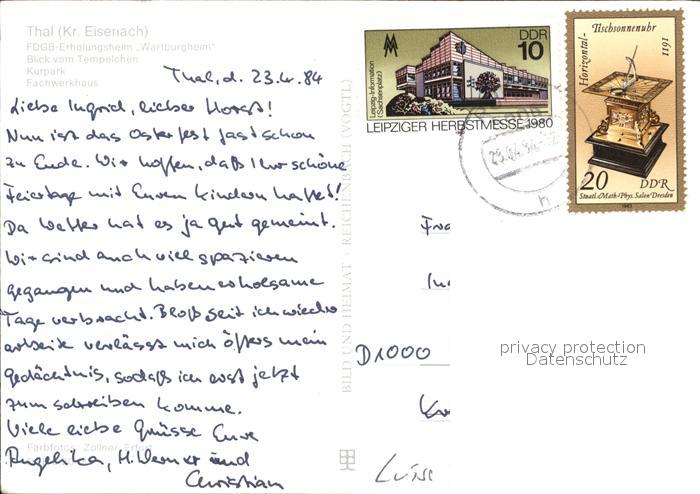 Thal (Kr. Eisenach)
FDGB-Erholungsheim „Wartburgheim"
Blick vom Tempelchen
Kurpark
Fachwerkhaus
Thal, d. 23.4.84
Liebe Ingrid, lieber Horst!
Nun ist das Osterfest fast schon
zu Ende. Wir hoffen, daß Ihr schöne
Feiertage mit Euren Kindern hattet!
Da Wetter hat es ja gut gemeint.
Wir sind auch viel spazieren
gegangen und haben erholsame
Tage verbracht. Bloß seit ich wieder
arbeite verlässt mich öfters mein
Gedächtnis, sodaß ich erst jetzt
zum schreiben komme.
Viele liebe Grüsse Eure
Angelika, H. Werner und
Christian
Farbfotos: Zollner, Erfurt
BILD UND HEIMAT · REICHENBACH (VOGTL)
DDR
10
Leipzig-Information
(Sachsenplatz)
LEIPZIGER HERBSTMESSE 1980
Horizontal-
Tischsonnenuhr
1611
20 DDR
Staatl. Math.-Phys. Salon Dresden
1983
h
D1000
privacy protection
Datenschutz